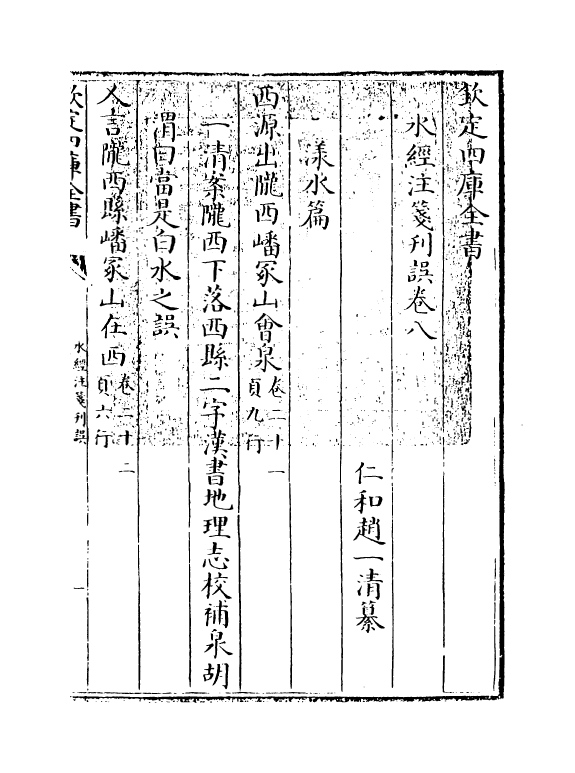 欽定四庫全書
水經注箋刋誤卷八
仁和趙一清纂
漾水篇
西源出隴西嶓冢山會泉卷二十一頁九行
一清案隴西下落西縣二字漢書地理志校補泉胡
渭曰當是白水之誤
又言隴西縣嶓冢山在西卷二十二頁六行
欽定四庫全書
水經注箋刋誤
一